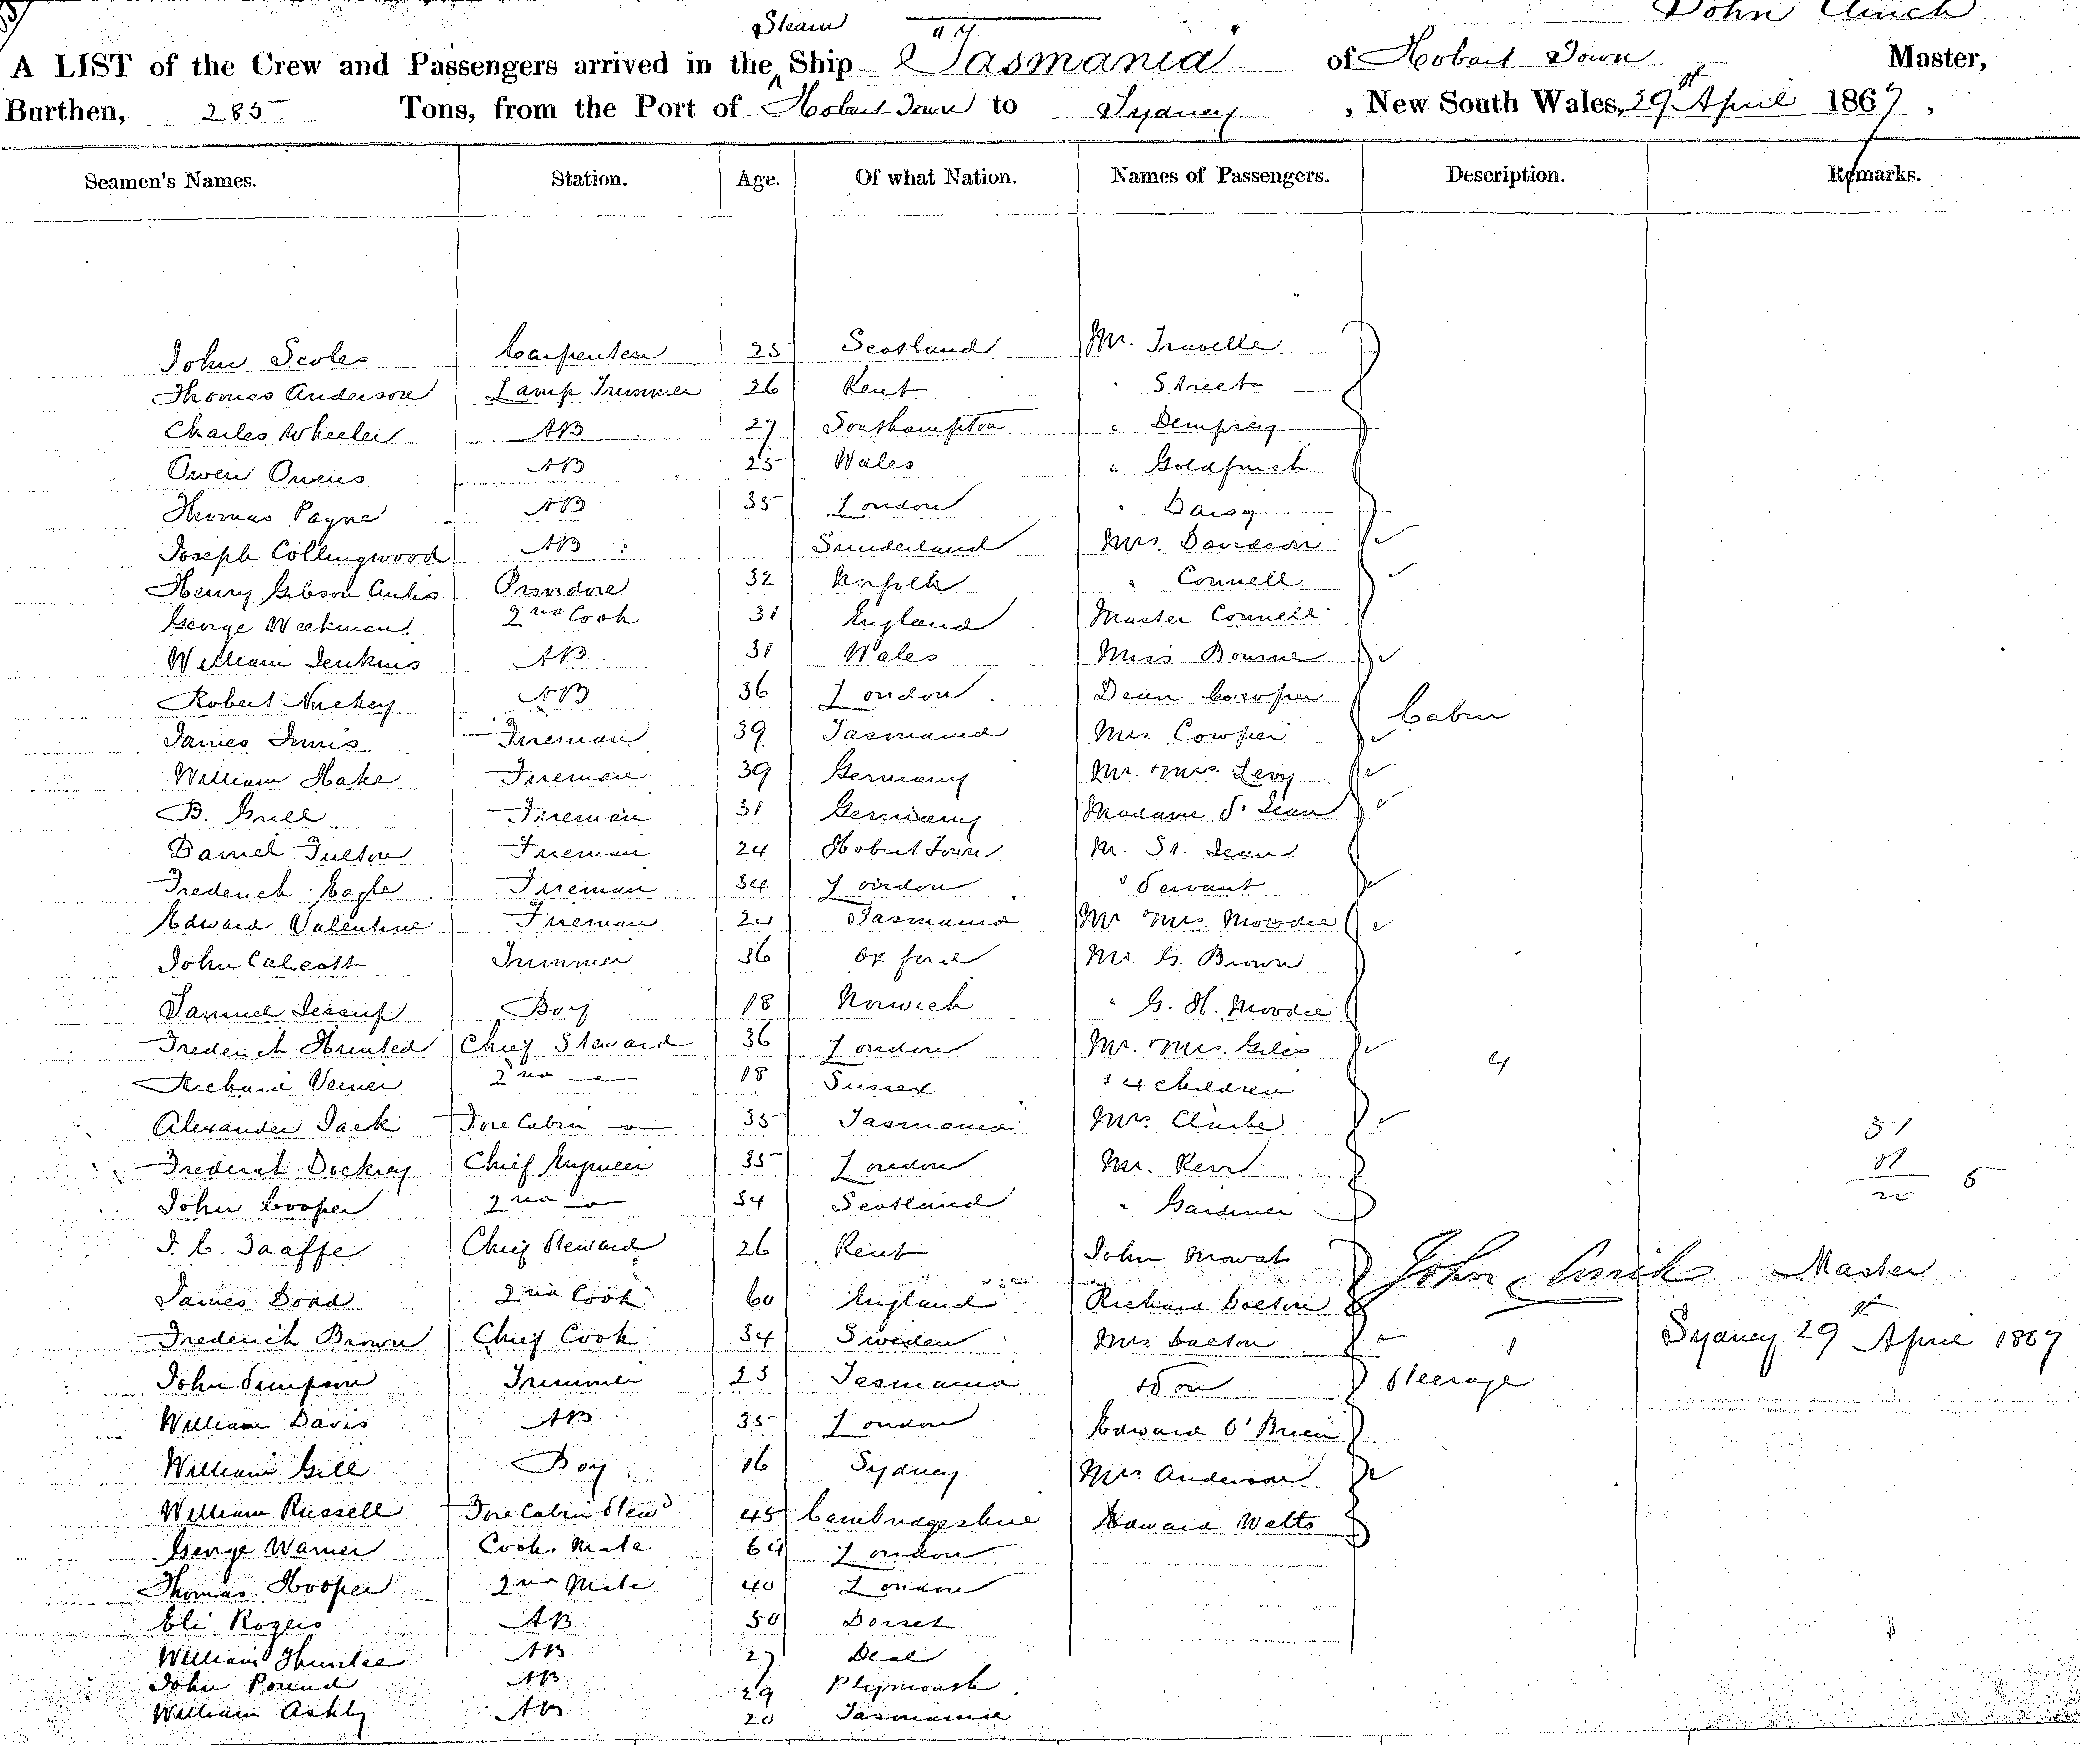 John Clinch
Steam
A LIST of the Crew and Passengers arrived in the ^ Ship "Tasmania" of Hobart Town Master,
Burthen, 285 Tons, from the Port of Hobart Town to Sydney, New South Wales, 29st April 1867,
Seamen's Names. Station. Age. Of what Nation. Names of Passengers. Description. Remarks.
John Scoles Carpenter 25 Scotland Mr. Travelle
Thomas Anderson Lamp Trimmer 26 Kent " Street
Charles Wheeler AB 27 Southampton " Dempsey
Owen Owens AB 25 Wales " Goldfinch
Thomas Payne AB 35 London " Daisy
Joseph Collingwood AB Sunderland Mrs. Davidson
Henry Gibson 32 Norfolk " Connell
George Workman 2nd Cook 31 England Master Connell
William Jenkins AB 31 Wales Miss Bourne
Robert AB 36 London Dean Cowper
James Innis Fireman 39 Tasmania Mrs Cowper Cabin
William Hake Fireman 39 Germany Mr. Mrs. Levy
B. Grill Fireman 31 Germany Madame St. Jean
Daniel Fulton Fireman 24 Hobart Town M. St. Jean
Frederick Cagle Fireman 34 London " Servant
Edward Valentine Fireman 24 Tasmania Mr Mrs Moodie
John Calcott Trimmer 36 Oxford Mr. G. Brown
Samuel Jessup Boy 18 Norwich " G. H. Moodie
Frederick Chief Steward 36 London Mr. Mrs. Giles 4
Richard Verner 2nd do 18 Sussex & 4 children
Alexander Jack Fore Cabin do 35 Tasmania Mrs. Clarke 31
Frederick Dockray Chief Engineer 35 London Mr. Kerr
John Cooper 2nd do 34 Scotland " Gardiner 5
J. C. Taaffe Chief Steward 26 Kent John Mowat John Clinch Master
James Bond 2nd Cook 60 England Richard Colton
Frederick Brown Chief Cook 34 Sweden Mrs Colton 1 Sydney 29st April 1867
John Simpson Trimmer 23 Tasmania Son Steerage
William Davis AB 35 London Edward O'Brien
William Gill Boy 16 Sydney Mrs Anderson
William Russell Fore Cabin Stewd 45 Cambridgeshire Edward Watts
George Warner Cooks Mate 64 London
Thomas Hooper 2nd Mate 40 London
Eli Rogers AB 50 Dorset
William AB 27 Deal
John Pound AB 29 Plymouth
William Ashby AB 20 Tasmania